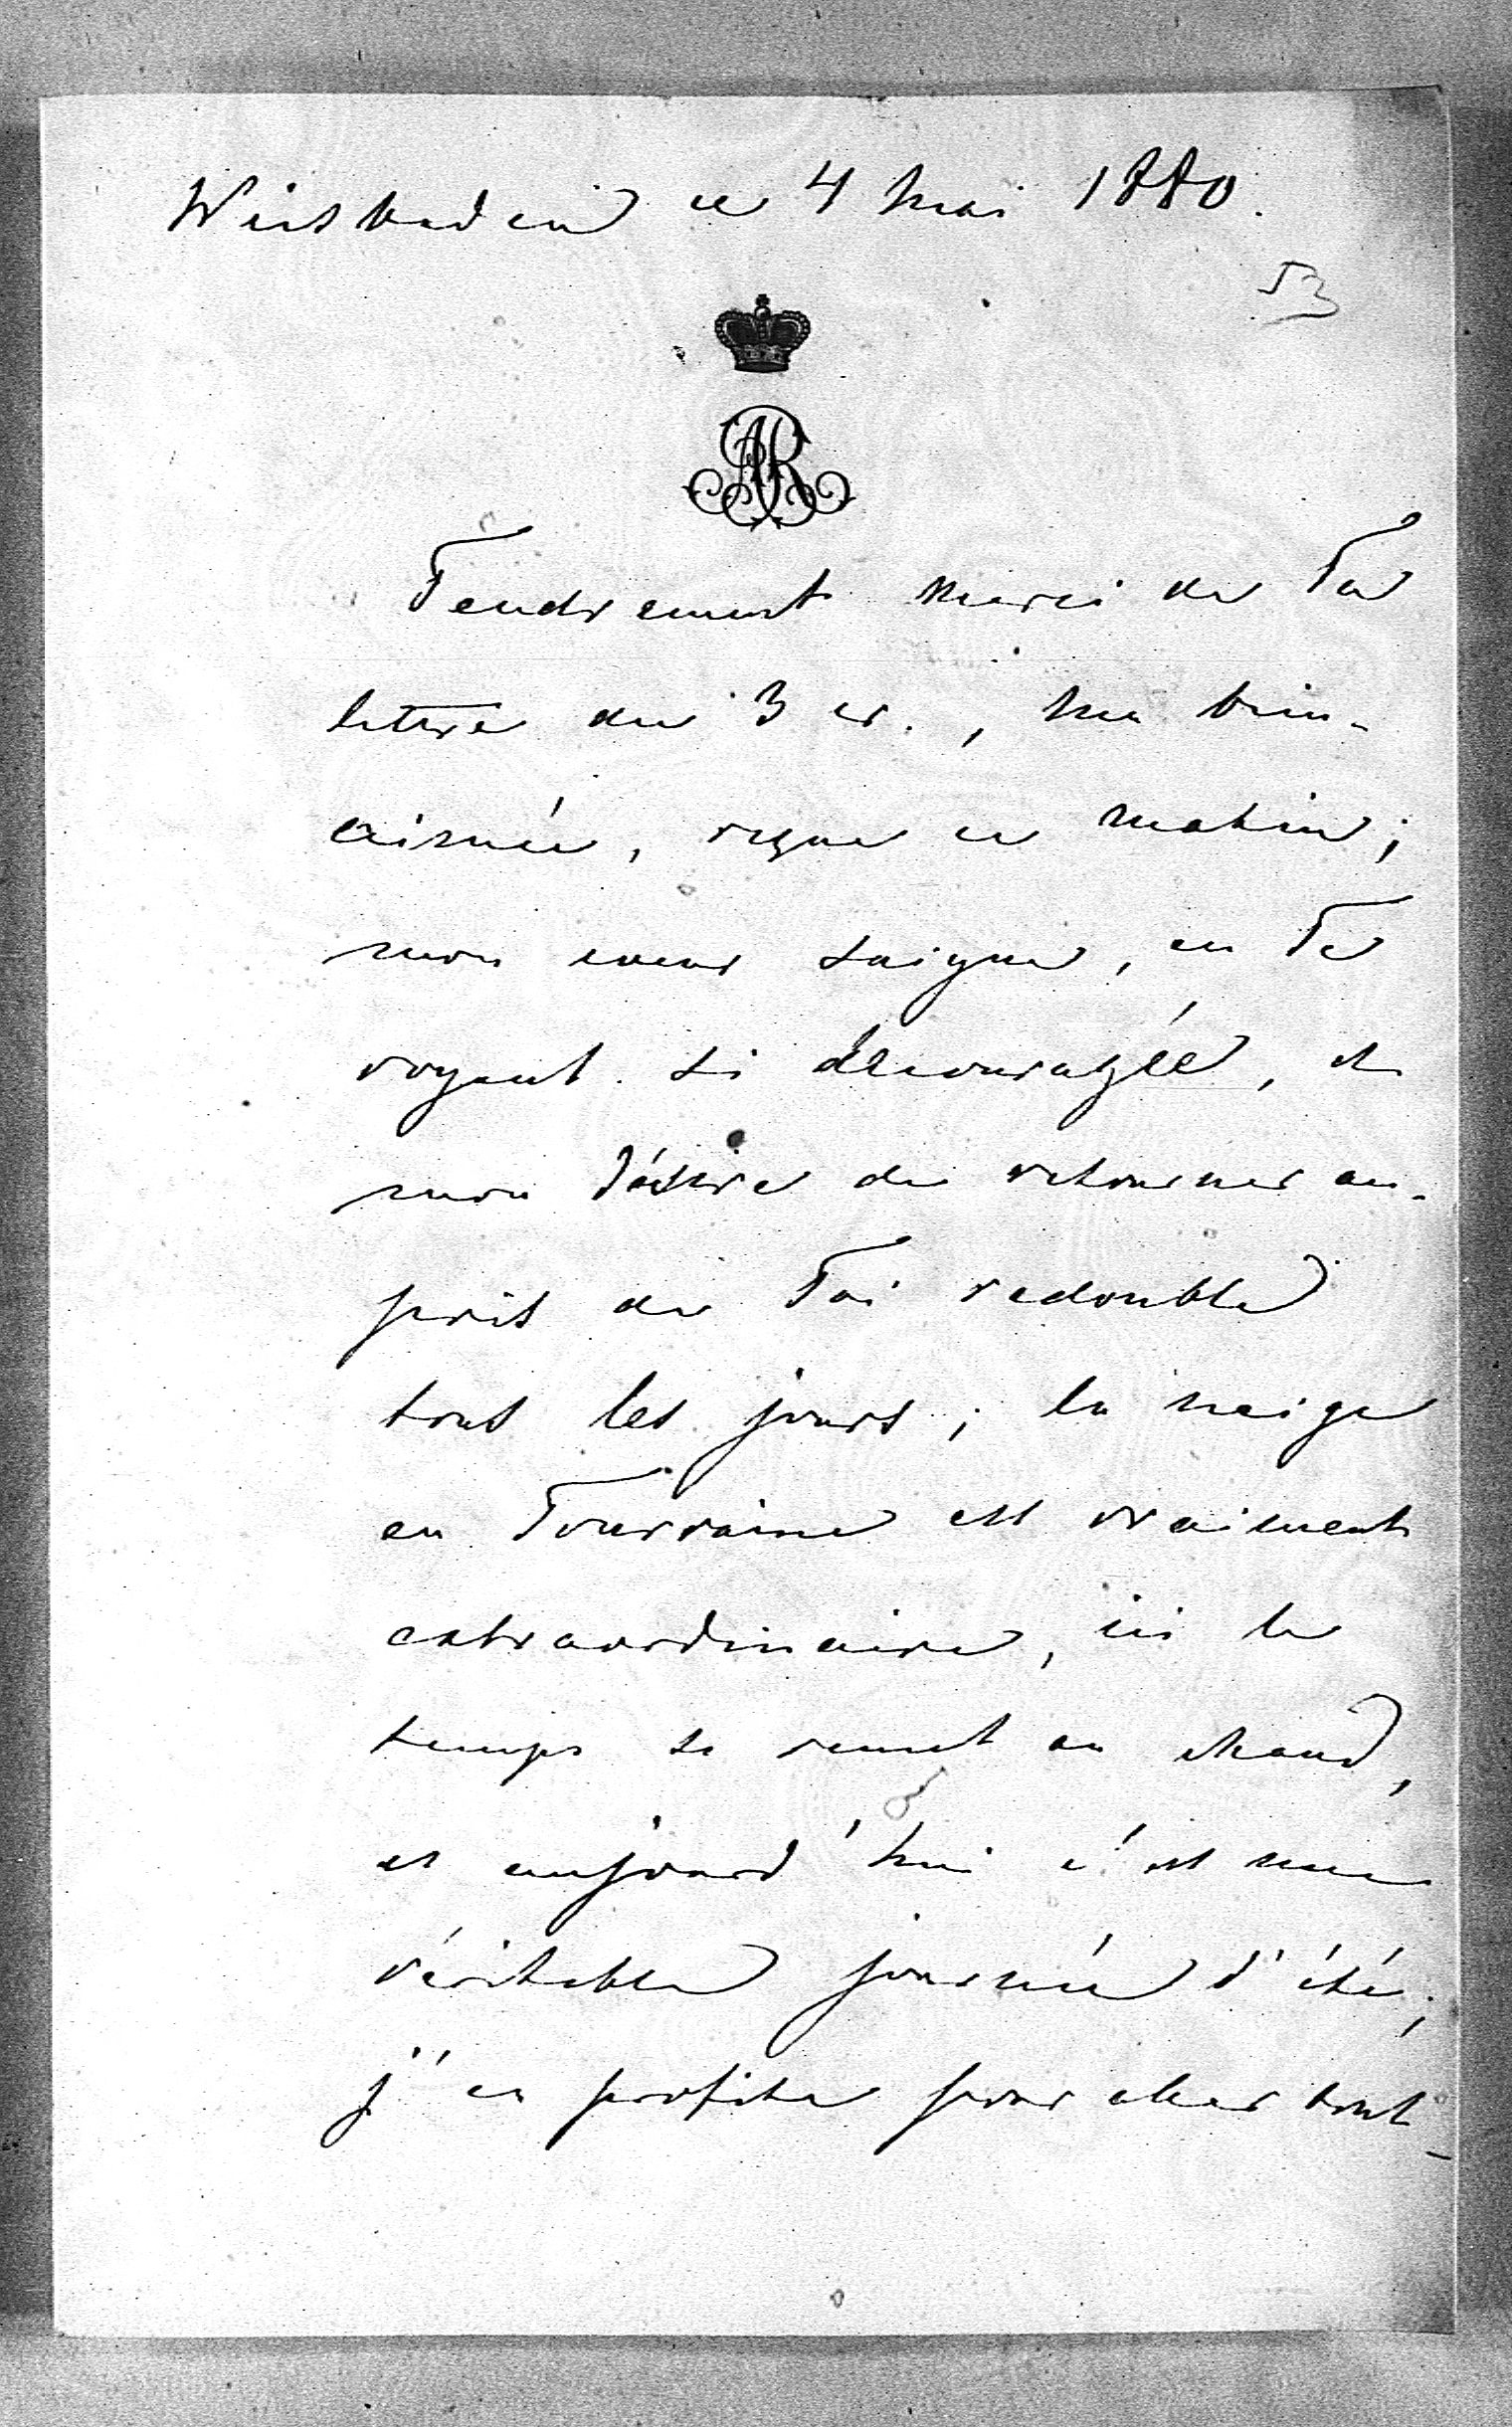 Wiesbaden ce 4 Mai 1880.
53
AR
Tendrement merci de Ta
lettre du 3 cr., ma bien-
aimée, reçue ce matin;
mon coeur saigne, en Te
voyant si découragée, et
mon désire de retourner au-
près de Toi redouble
tous les jours; la neige
en Tourraine est vraiment
extraordinaire, ici le
temps se remet au chaud,
et aujourd'hui c'est une
véritable journée d'été;
j'en profite pour aller tout-